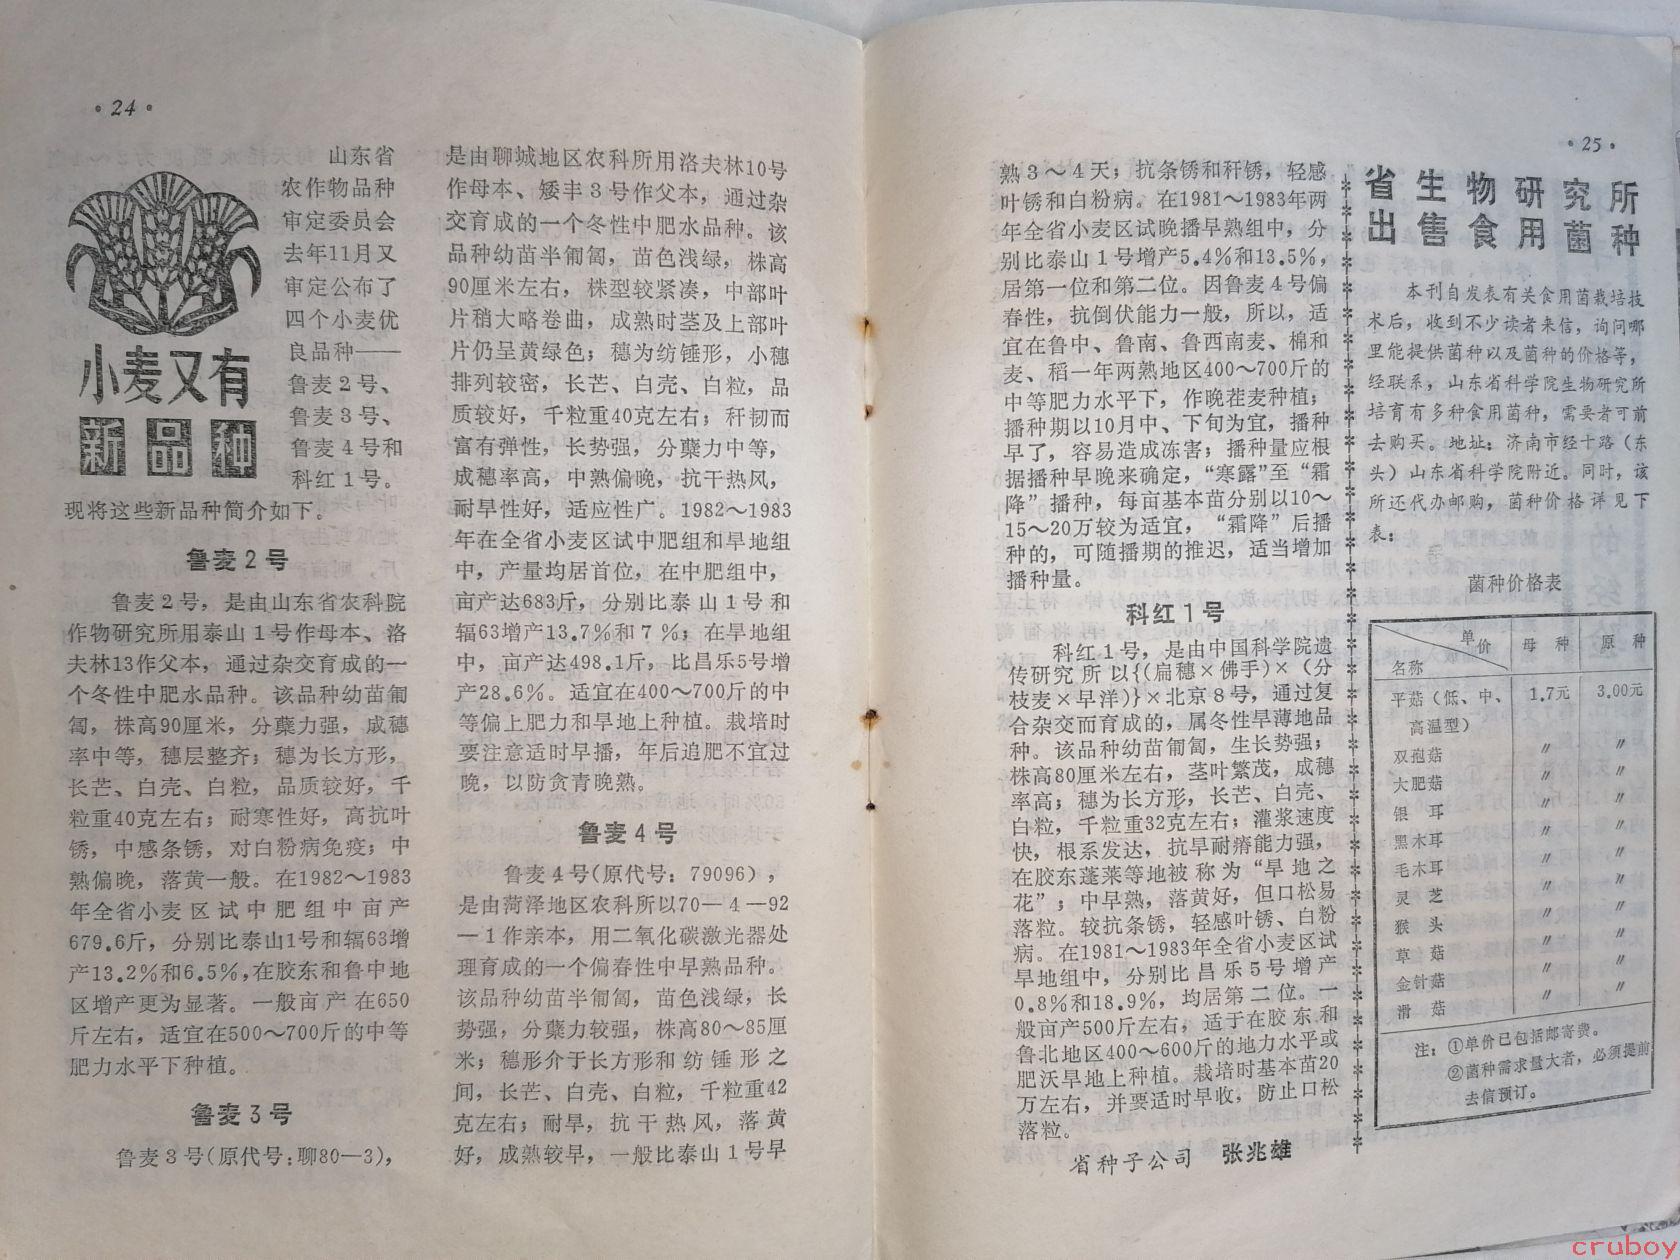 ·24·
小麦又有
新品种
山东省
农作物品种
审定委员会
去年11月又
审定公布了
四个小麦优
良品种——
鲁麦2号、
鲁麦3号、
鲁麦4号和
科红1号。
现将这些新品种简介如下。
鲁麦2号
鲁麦2号，是由山东省农科院
作物研究所用泰山1号作母本、洛
夫林13作父本，通过杂交育成的一
个冬性中肥水品种。该品种幼苗匍
匐，株高90厘米，分蘖力强，成穗
率中等，穗层整齐；穗为长方形，
长芒、白壳、白粒，品质较好，千
粒重40克左右；耐寒性好，高抗叶
锈，中感条锈，对白粉病免疫；中
熟偏晚，落黄一般。在1982～1983
年全省小麦区试中肥组中亩产
679.6斤，分别比泰山1号和辐63增
产13.2%和6.5%，在胶东和鲁中地
区增产更为显著。一般亩产在650
斤左右，适宜在500～700斤的中等
肥力水平下种植。
鲁麦3号
鲁麦3号（原代号：聊80—3），
是由聊城地区农科所用洛夫林10号
作母本、矮丰3号作父本，通过杂
交育成的一个冬性中肥水品种。该
品种幼苗半匍匐，苗色浅绿，株高
90厘米左右，株型较紧凑，中部叶
片稍大略卷曲，成熟时茎及上部叶
片仍呈黄绿色；穗为纺锤形，小穗
排列较密，长芒、白壳、白粒，品
质较好，千粒重40克左右；秆韧而
富有弹性，长势强，分蘖力中等，
成穗率高，中熟偏晚，抗干热风，
耐旱性好，适应性广。1982～1983
年在全省小麦区试中肥组和旱地组
中，产量均居首位，在中肥组中，
亩产达683斤，分别比泰山1号和
辐63增产13.7%和7%；在旱地组
中，亩产达498.1斤，比昌乐5号增
产28.6%。适宜在400～700斤的中
等偏上肥力和旱地上种植。栽培时
要注意适时早播，年后追肥不宜过
晚，以防贪青晚熟。
鲁麦4号
鲁麦4号（原代号：79096），
是由菏泽地区农科所以70—4—92
—1作亲本，用二氧化碳激光器处
理育成的一个偏春性中早熟品种。
该品种幼苗半匍匐，苗色浅绿，长
势强，分蘖力较强，株高80～85厘
米；穗形介于长方形和纺锤形之
间，长芒、白壳、白粒，千粒重42
克左右；耐旱，抗干热风，落黄
好，成熟较早，一般比泰山1号早
·25·
熟3～4天；抗条锈和秆锈，轻感
叶锈和白粉病。在1981～1983年两
年全省小麦区试晚播早熟组中，分
别比泰山1号增产5.4%和13.5%，
居第一位和第二位。因鲁麦4号偏
春性，抗倒伏能力一般，所以，适
宜在鲁中、鲁南、鲁西南麦、棉和
麦、稻一年两熟地区400～700斤的
中等肥力水平下，作晚茬麦种植；
播种期以10月中、下旬为宜，播种
早了，容易造成冻害；播种量应根
据播种早晚来确定，“寒露”至“霜
降”播种，每亩基本苗分别以10～
15～20万较为适宜，“霜降”后播
种的，可随播期的推迟，适当增加
播种量。
科红1号
科红1号，是由中国科学院遗
传研究所以{(扁穗×佛手)×（分
枝麦×早洋)}×北京8号，通过复
合杂交而育成的，属冬性旱薄地品
种。该品种幼苗匍匐，生长势强；
株高80厘米左右，茎叶繁茂，成穗
率高；穗为长方形，长芒、白壳、
白粒，千粒重32克左右；灌浆速度
快，根系发达，抗旱耐瘠能力强，
在胶东蓬莱等地被称为“旱地之
花”；中早熟，落黄好，但口松易
落粒。较抗条锈，轻感叶锈、白粉
病。在1981～1983年全省小麦区试
旱地组中，分别比昌乐5号增产
0.8%和18.9%，均居第二位。一
般亩产500斤左右，适于在胶东和
鲁北地区400～600斤的地力水平或
肥沃旱地上种植。栽培时基本苗20
万左右，并要适时早收，防止口松
落粒。
省种子公司 张兆雄
省生物研究所
出售食用菌种
本刊自发表有关食用菌栽培技
术后，收到不少读者来信，询问哪
里能提供菌种以及菌种的价格等，
经联系，山东省科学院生物研究所
培育有多种食用菌种，需要者可前
去购买。地址：济南市经十路（东
头）山东省科学院附近。同时，该
所还代办邮购，菌种价格详见下
表：
菌种价格表
名称 单价 母种 原种
平菇（低、中、 1.7元 3.00元
高温型）
双孢菇 〃 〃
大肥菇 〃 〃
银耳 〃 〃
黑木耳 〃 〃
毛木耳 〃 〃
灵芝 〃 〃
猴头 〃 〃
草菇 〃 〃
金针菇 〃 〃
滑菇 〃 〃
注：①单价已包括邮寄费。
②菌种需求量大者，必须提前
去信预订。
cruboy